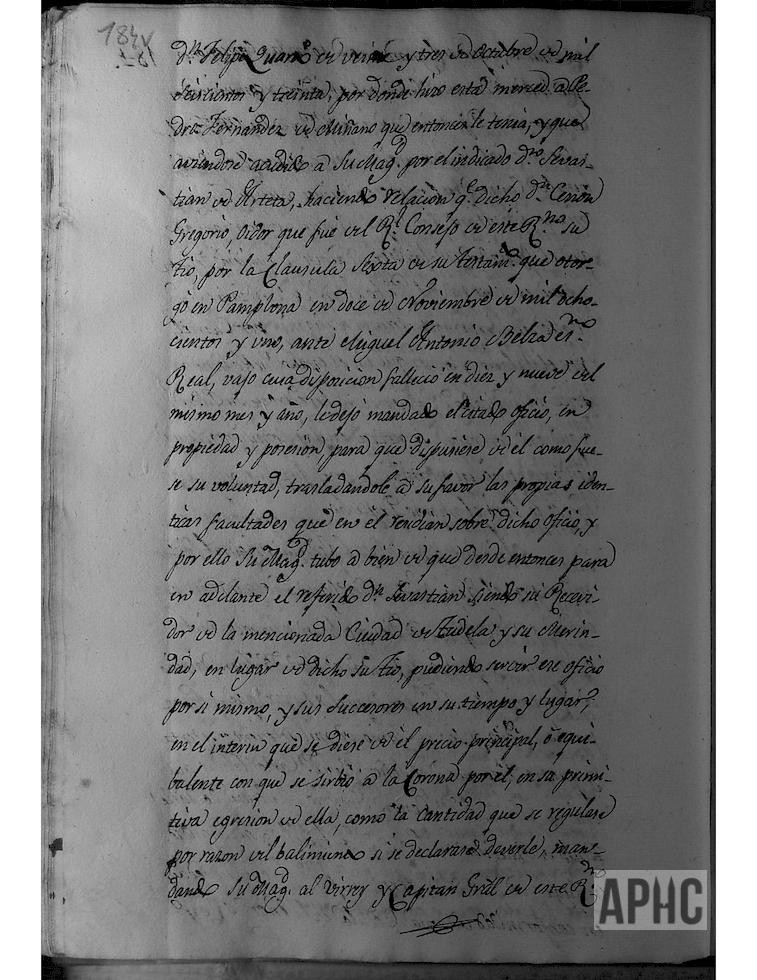 184v
dn. Felipe Quarto de veinte y tres de Octubre de mil
seiscientos y treinta, por donde hizo esta merced a Pe-
dro Fernandez de Miñano que entonces le tenia, y que
aviendose acudido a Su Magd. por el indicado dn. Sevas-
tian de Arteta, haciendo relacion qe. dicho dn. Cenon
Gregorio, Oidor que fue del Rl. Consejo de este Rno. su
tio, por la Clausula sexta de su testamto. que otor-
gó en Pamplona en doce de Noviembre de mil ocho-
cientos y uno, ante Miguel Antonio Belza esno.
Real, vajo cuia disposicion falleció en diez y nueve del
mismo mes y año, le dejó mandado el citado oficio, en
propiedad y posesión, para que dispusiese de él como fue-
se su voluntad, trasladandole a su favor las propias iden-
ticas facultades que en él tendian sobre dicho oficio, y
por ello Su Magd. tubo a bien de que desde entonces para
en adelante el referido dn. Sevastian siendo su Recevi-
dor de la mencionada Ciudad de Tudela y su Merin-
dad, en lugar de dicho su Tio, pudiendo servir ese oficio
por si mismo, y sus Succesores en su tiempo y lugar,
en el interin que se diese de él precio principal, ó equi-
balente con que se sirbió a la Corona por él, en sa primi-
tiva egresion de ella, como la cantidad que se regulase
por razon del balimiento si se declarase deverle, man-
dando Su Magd. al Virrey y Capitan Grál de este Rno.
APHC